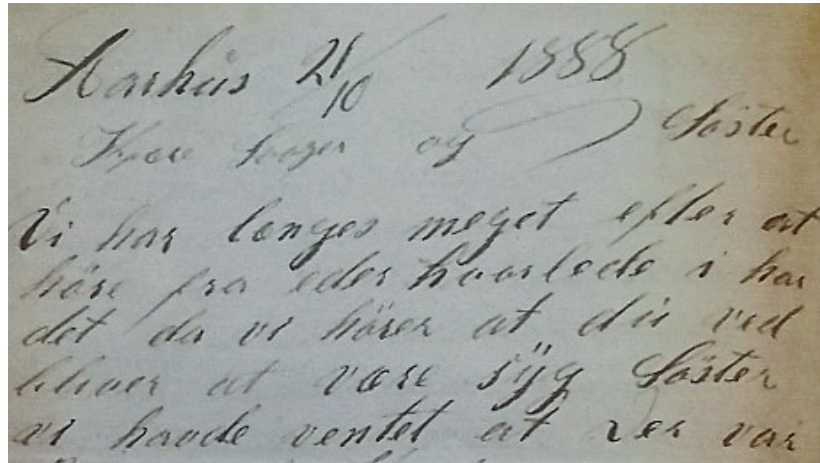 Aarhus 21/10 1888
Kjære Svoger og Söster
Vi har længes meget efter at
höre fra eder hvorlede i har
det da vi hörer at du ved
bliver at være syg Söster
vi havde ventet at der var